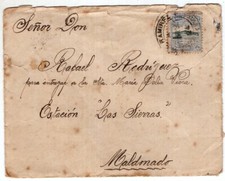 Señor Don
Rafael Rodrigu
para entregar a la Sta María Julia
Estación "Las Sierras"
Maldonado